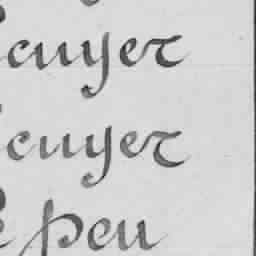 Ecuyer
Ecuyer
peu